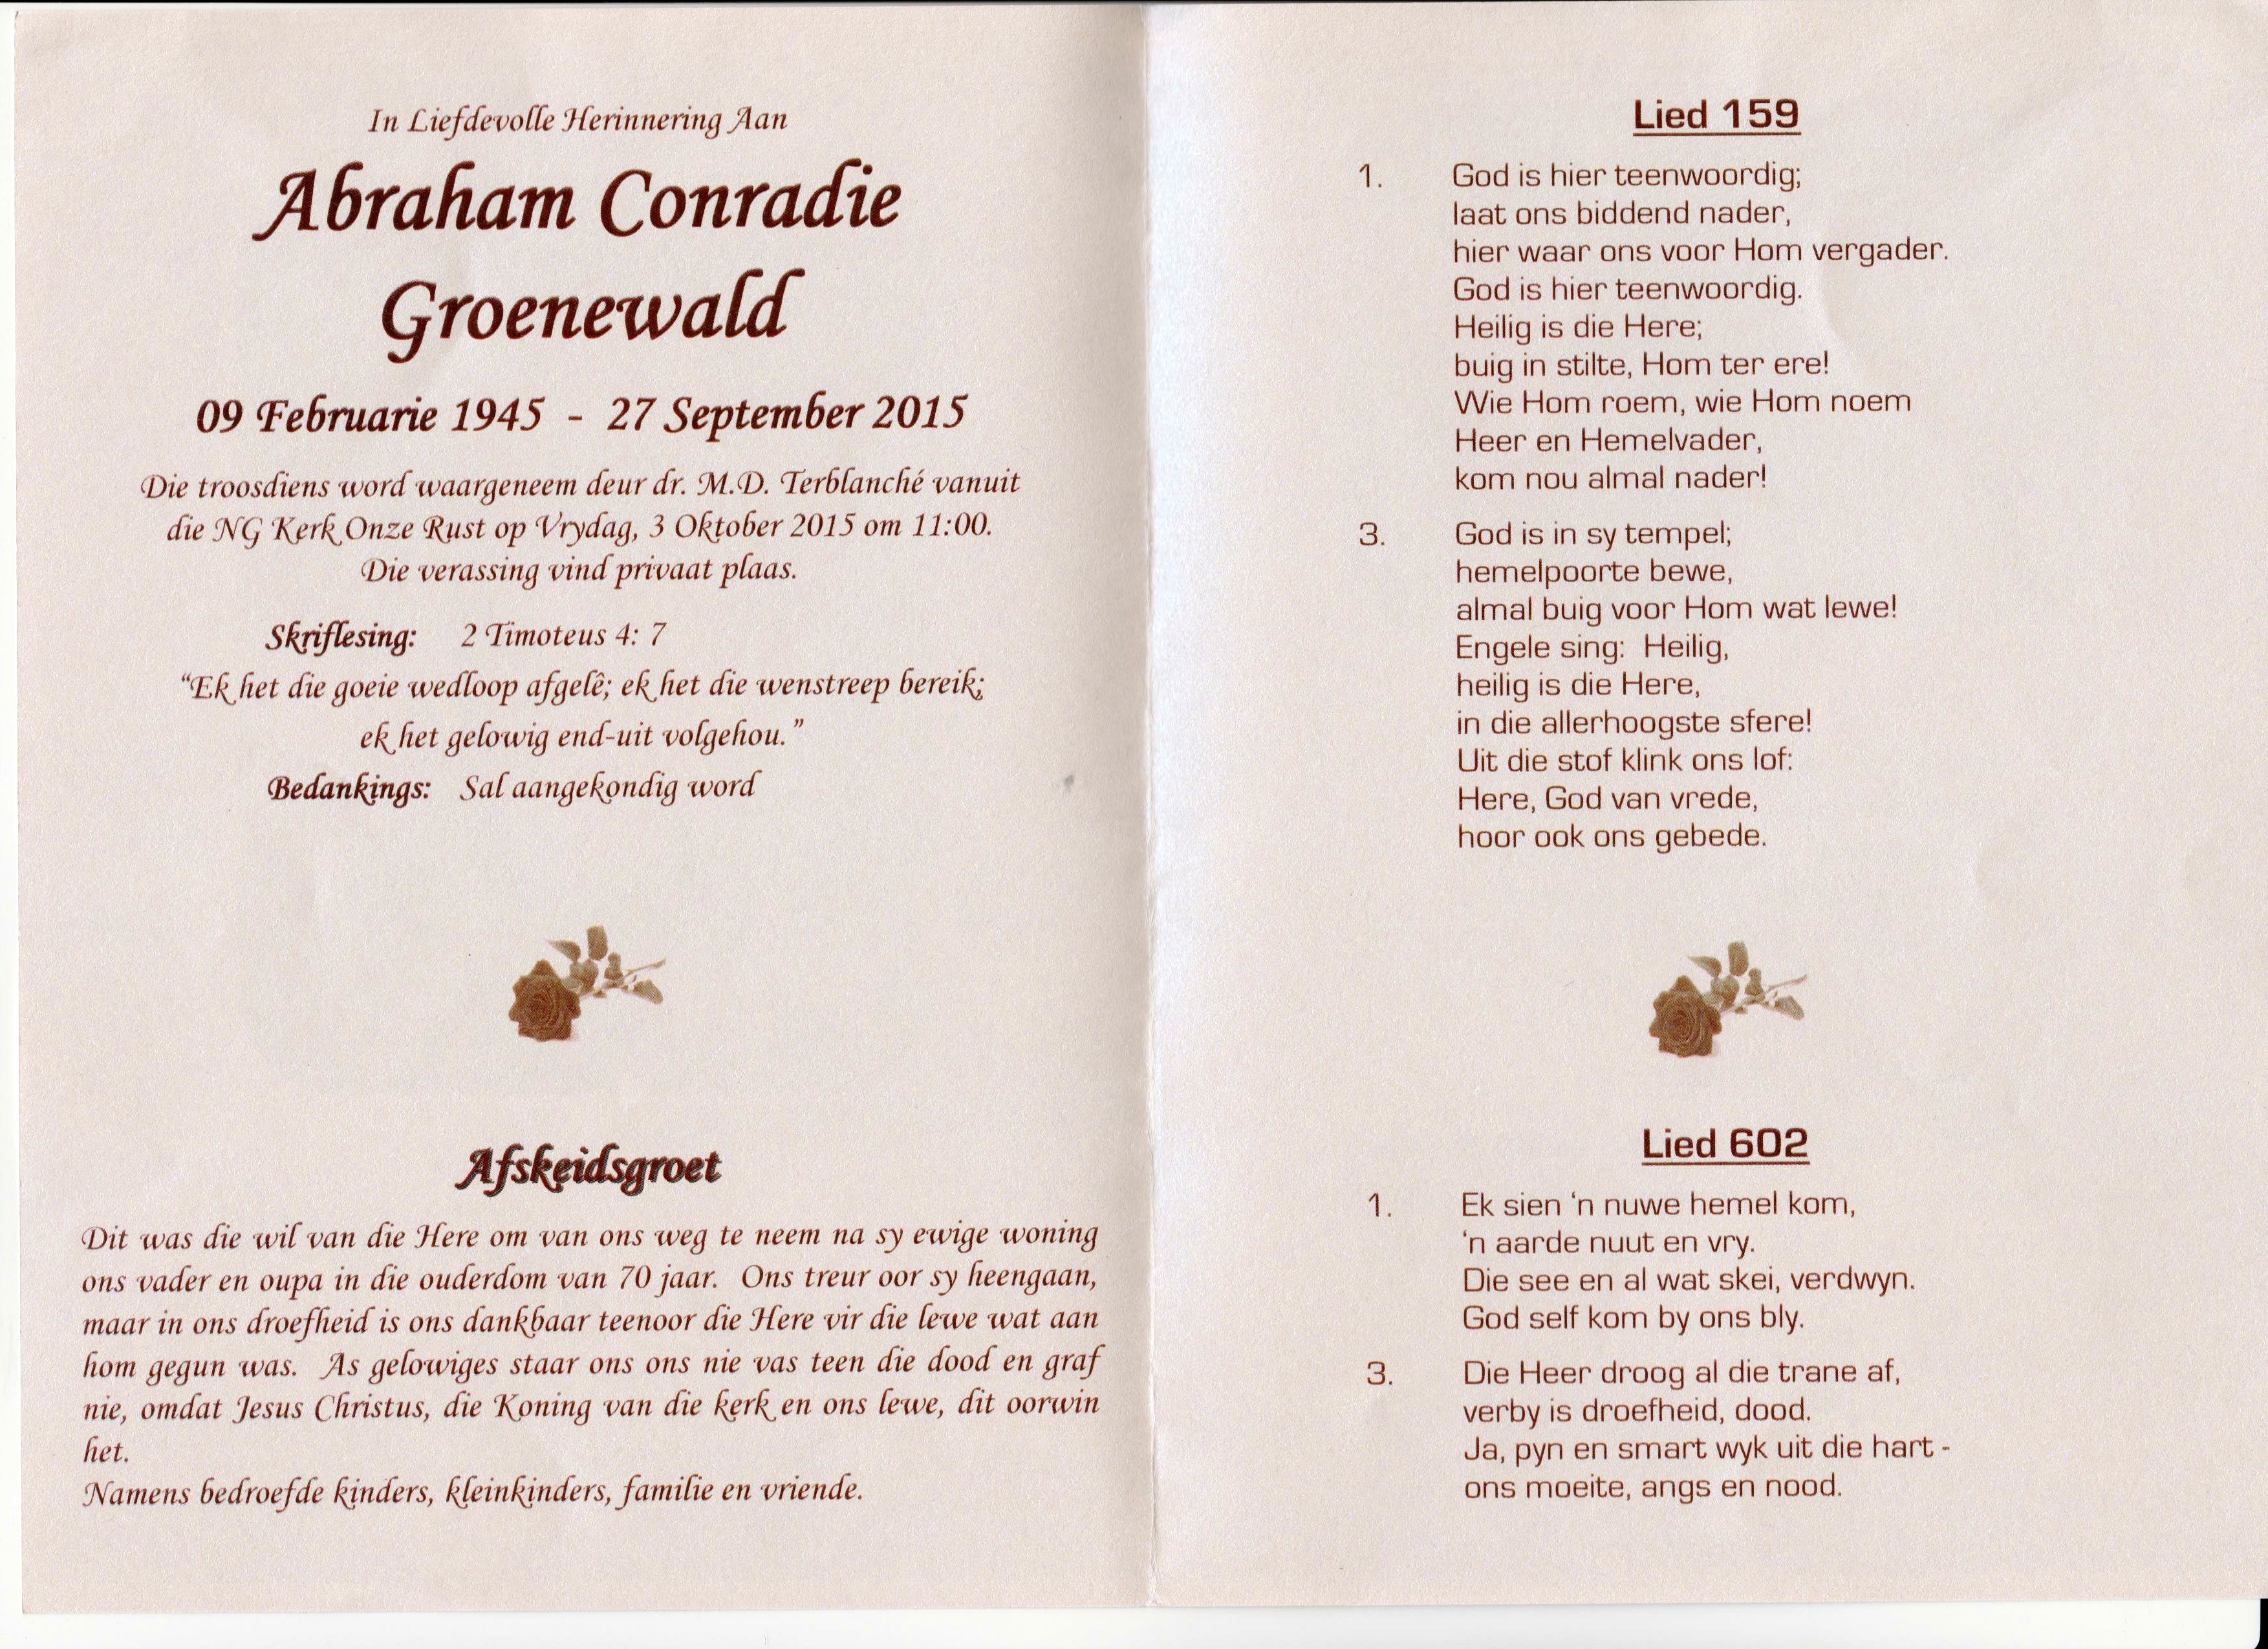 In Liefdevolle Herinnering Aan
Abraham Conradie
Groenewald
09 Februarie 1945 - 27 September 2015
Die troosdiens word waargeneem deur dr. M.D. Terblanché vanuit
die NG Kerk Onze Rust op Vrydag, 3 Oktober 2015 om 11:00.
Die verassing vind privaat plaas.
Skriflesing: 2 Timoteus 4: 7
“Ek het die goeie wedloop afgelê; ek het die wenstreep bereik;
ek het gelowig end-uit volgehou.”
Bedankings: Sal aangekondig word
Afskeidsgroet
Dit was die wil van die Here om van ons weg te neem na sy ewige woning
ons vader en oupa in die ouderdom van 70 jaar. Ons treur oor sy heengaan,
maar in ons droefheid is ons dankbaar teenoor die Here vir die lewe wat aan
hom gegun was. As gelowiges staar ons ons nie vas teen die dood en graf
nie, omdat Jesus Christus, die Koning van die kerk en ons lewe, dit oorwin
het.
Namens bedroefde kinders, kleinkinders, familie en vriende.
Lied 159
1. God is hier teenwoordig;
laat ons biddend nader,
hier waar ons voor Hom vergader.
God is hier teenwoordig.
Heilig is die Here;
buig in stilte, Hom ter ere!
Wie Hom roem, wie Hom noem
Heer en Hemelvader,
kom nou almal nader!
3. God is in sy tempel;
hemelpoorte bewe,
almal buig voor Hom wat lewe!
Engele sing: Heilig,
heilig is die Here,
in die allerhoogste sfere!
Uit die stof klink ons lof:
Here, God van vrede,
hoor ook ons gebede.
Lied 602
1. Ek sien ‘n nuwe hemel kom,
‘n aarde nuut en vry.
Die see en al wat skei, verdwyn.
God self kom by ons bly.
3. Die Heer droog al die trane af,
verby is droefheid, dood.
Ja, pyn en smart wyk uit die hart -
ons moeite, angs en nood.